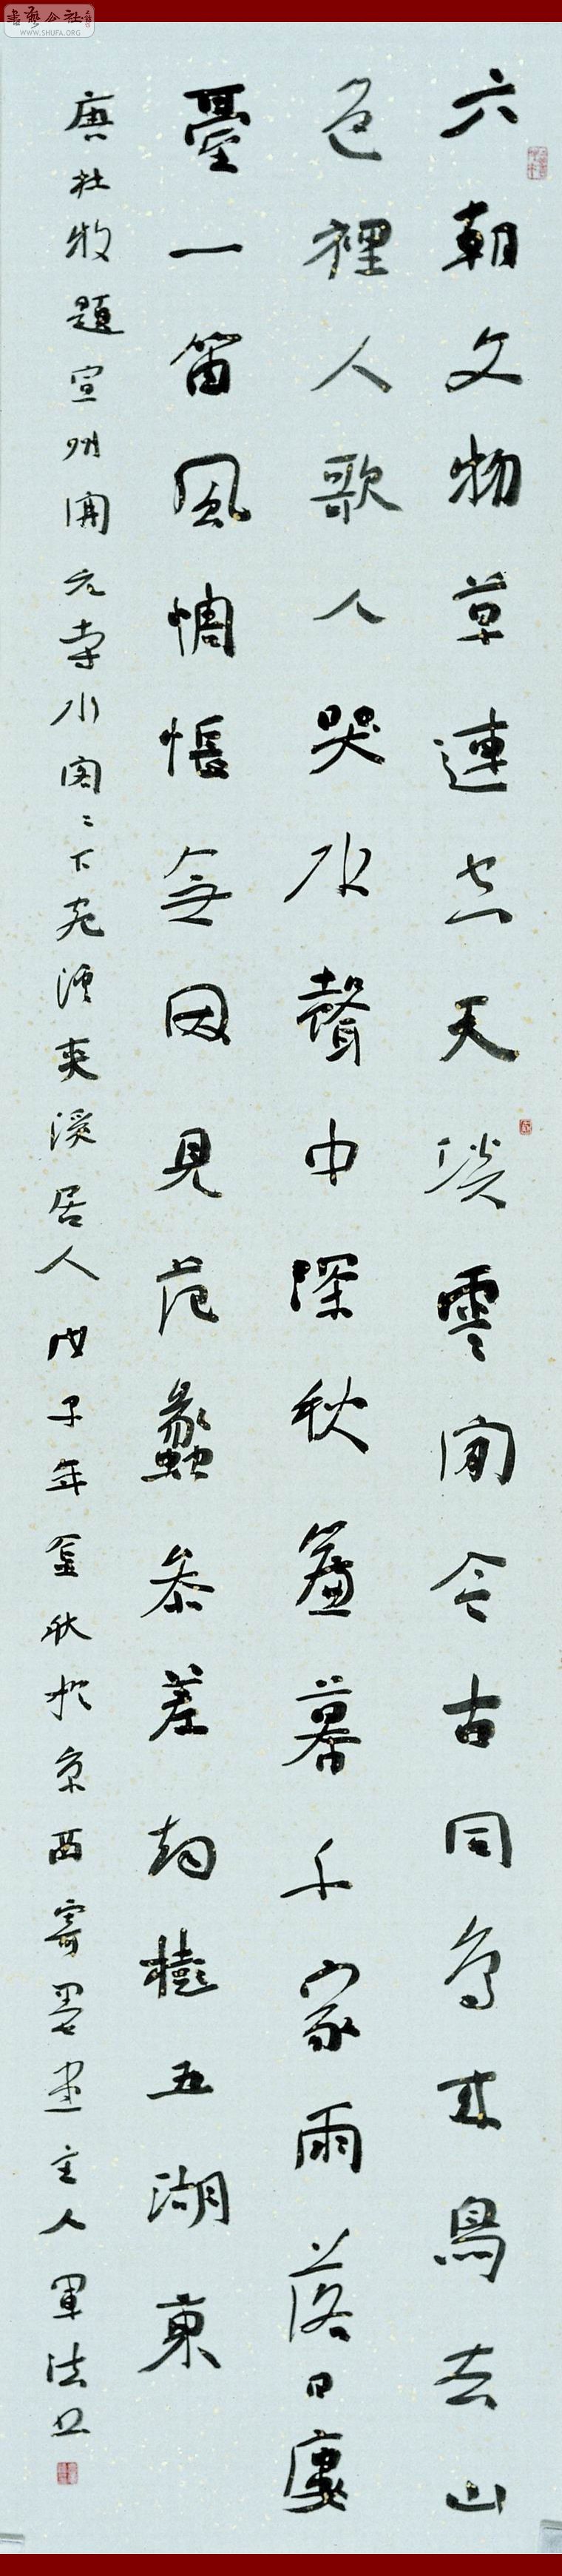 書藝公社
WWW.SHUFA.ORG
六朝文物草連空天淡雲閑今古同鳥來鳥去山
色裡人歌人哭水聲中深秋簾幕千家雨落日樓
臺一笛風惆悵無因見范蠡參差煙樹五湖東
唐杜牧題宣州開元寺水閣〻下宛溪夾溪居人戊子年金秋於京西寄墨主人軍法書